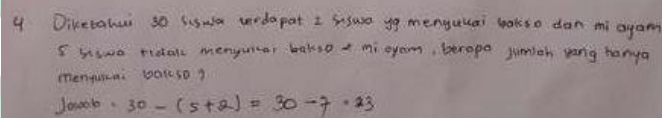 4 Diketahui 30 siswa terdapat 2 siswa yg menyukai bakso dan mi ayam
5 siswa tidak menyukai bakso & mi ayam, berapa jumlah yang hanya
menyukai bakso ?
Jawab = 30 - (5+2) = 30 - 7 = 23